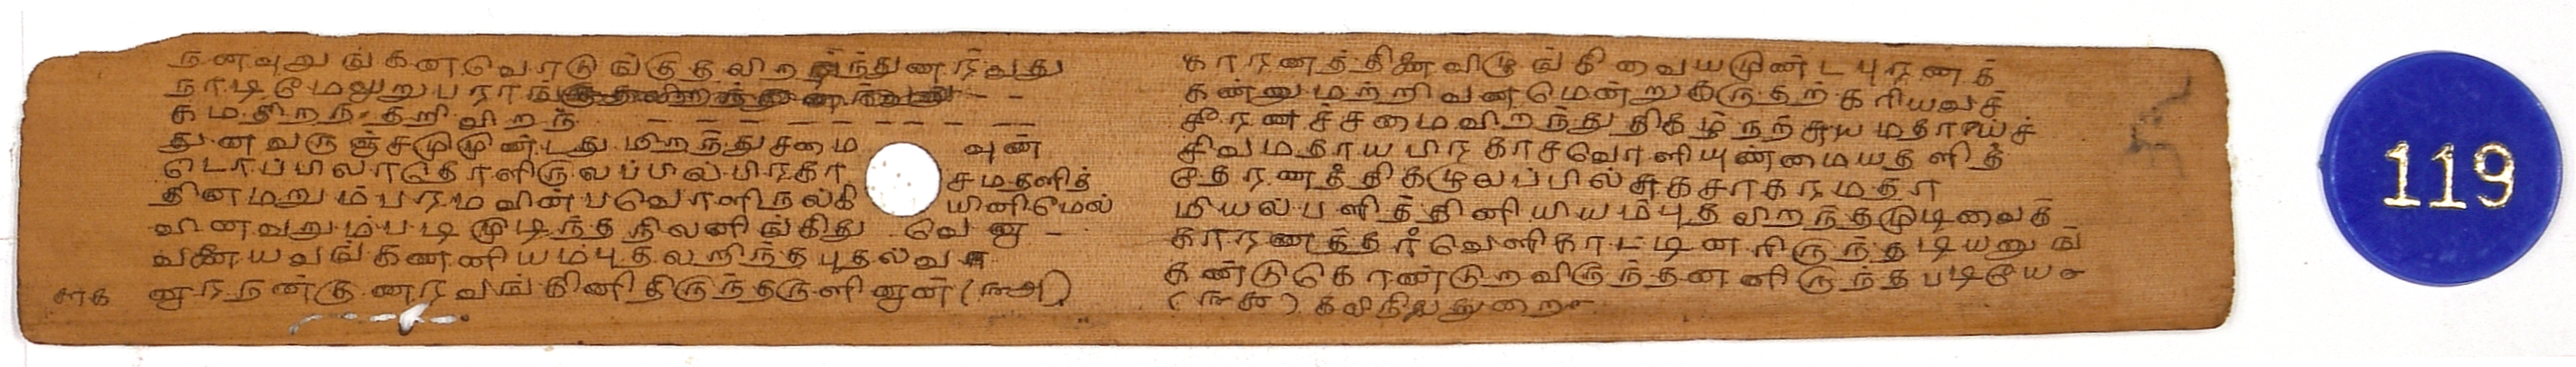 நனவுறுங்கனவொடுங்குதலிறந்துணர்வது
நாடிமேலுறுபராங்
கமதிறந்தறிவிறந்
துனவருஞ்சமுமுண்டதுமிறந்துசமை வுன்
டொப்பிலாதொளிருலப்பில்பிரகா சமதளித்
தினமறும்பரமவின்பவொளிநல்கி யினிமேல்
வினவறும்படிமுடிந்தநிலனிங்கிது வெனு
வனையவங்கணனியம்புதலறிந்தபுதல்வ
னுரநன்குணரவங்கினிதிருந்தருளினுன்
காரணத்தினைவிடுங்கிவையமுண்டபுரணக்
கண்னுமற்றிவனமென்றுகருதற்கரியவச்
சீரணச்சமைவிறந்துதிகழ்நற்சுயமதாய்ச்
சிவமதாயபிரகாசவொளியுண்மையதளித்
தேரணத்திகழுலப்பில்சுகசாகரமதா
மியல்பளித்தினியியம்புதலிறந்தமுடிவைக்
காரணத்தர்வெளிகாட்டினரிருந்தடியனுங்
கண்டுகொண்டுறவிருந்தனனிருந்தபடியே
கலிநிலதுறை
119